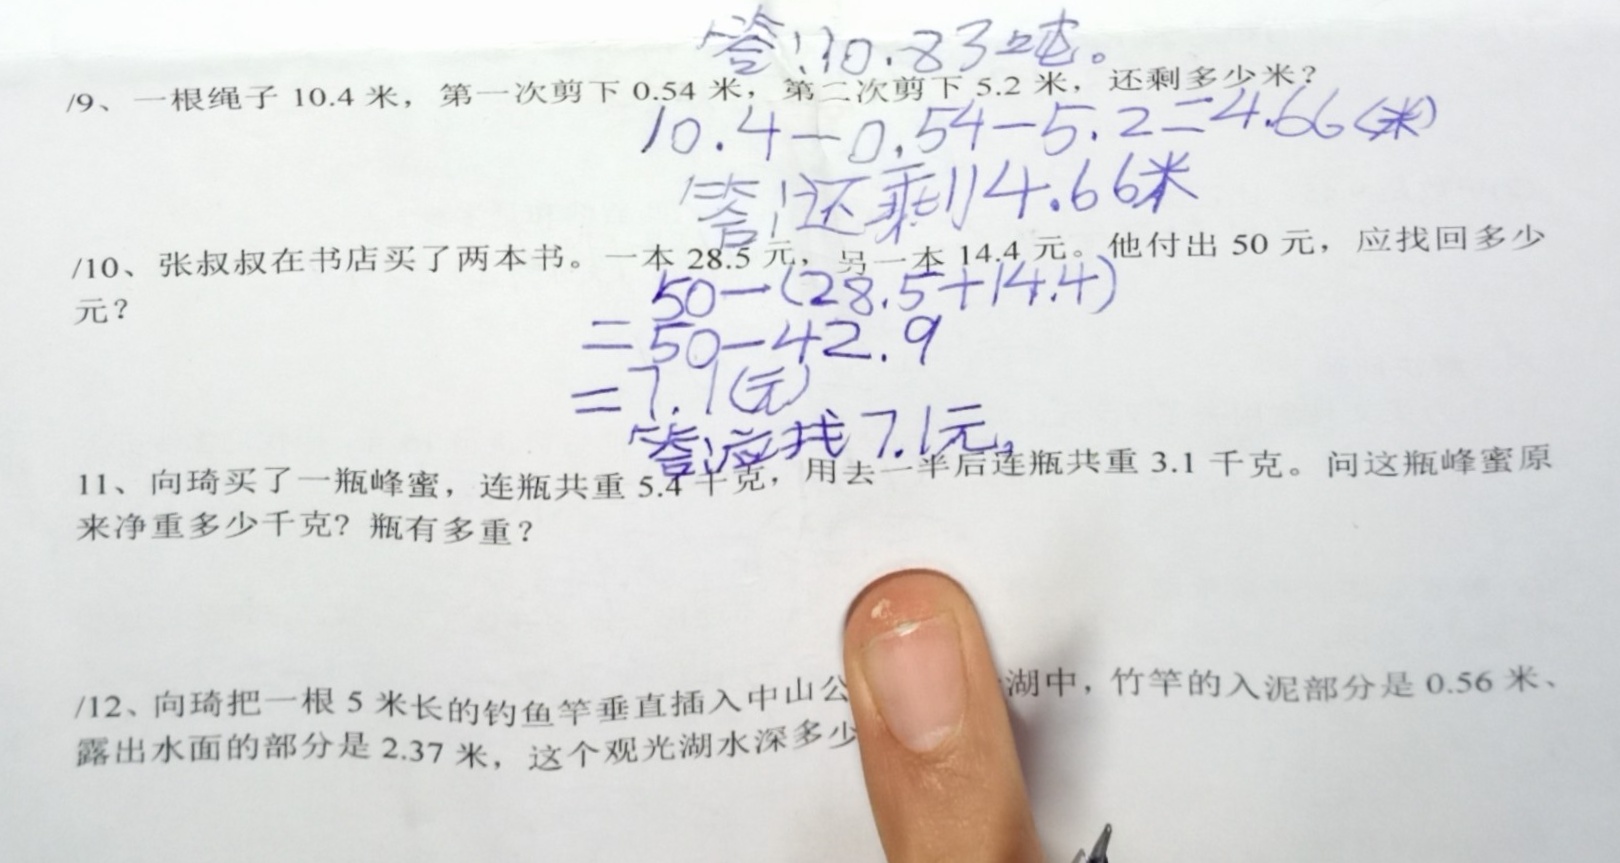 答:10.83吨。
/9、一根绳子 10.4 米，第一次剪下 0.54 米，第二次剪下 5.2 米，还剩多少米？
10.4-0.54-5.2=4.66(米)
答:还剩4.66米
/10、张叔叔在书店买了两本书。一本 28.5 元，另一本 14.4 元。他付出 50 元，应找回多少
元？
50-(28.5+14.4)
=50-42.9
=7.1(元)
答:应找7.1元。
11、向琦买了一瓶峰蜜，连瓶共重 5.4 千克，用去一半后连瓶共重 3.1 千克。问这瓶峰蜜原
来净重多少千克？瓶有多重？
/12、向琦把一根 5 米长的钓鱼竿垂直插入中山公 湖中，竹竿的入泥部分是 0.56 米、
露出水面的部分是 2.37 米，这个观光湖水深多少